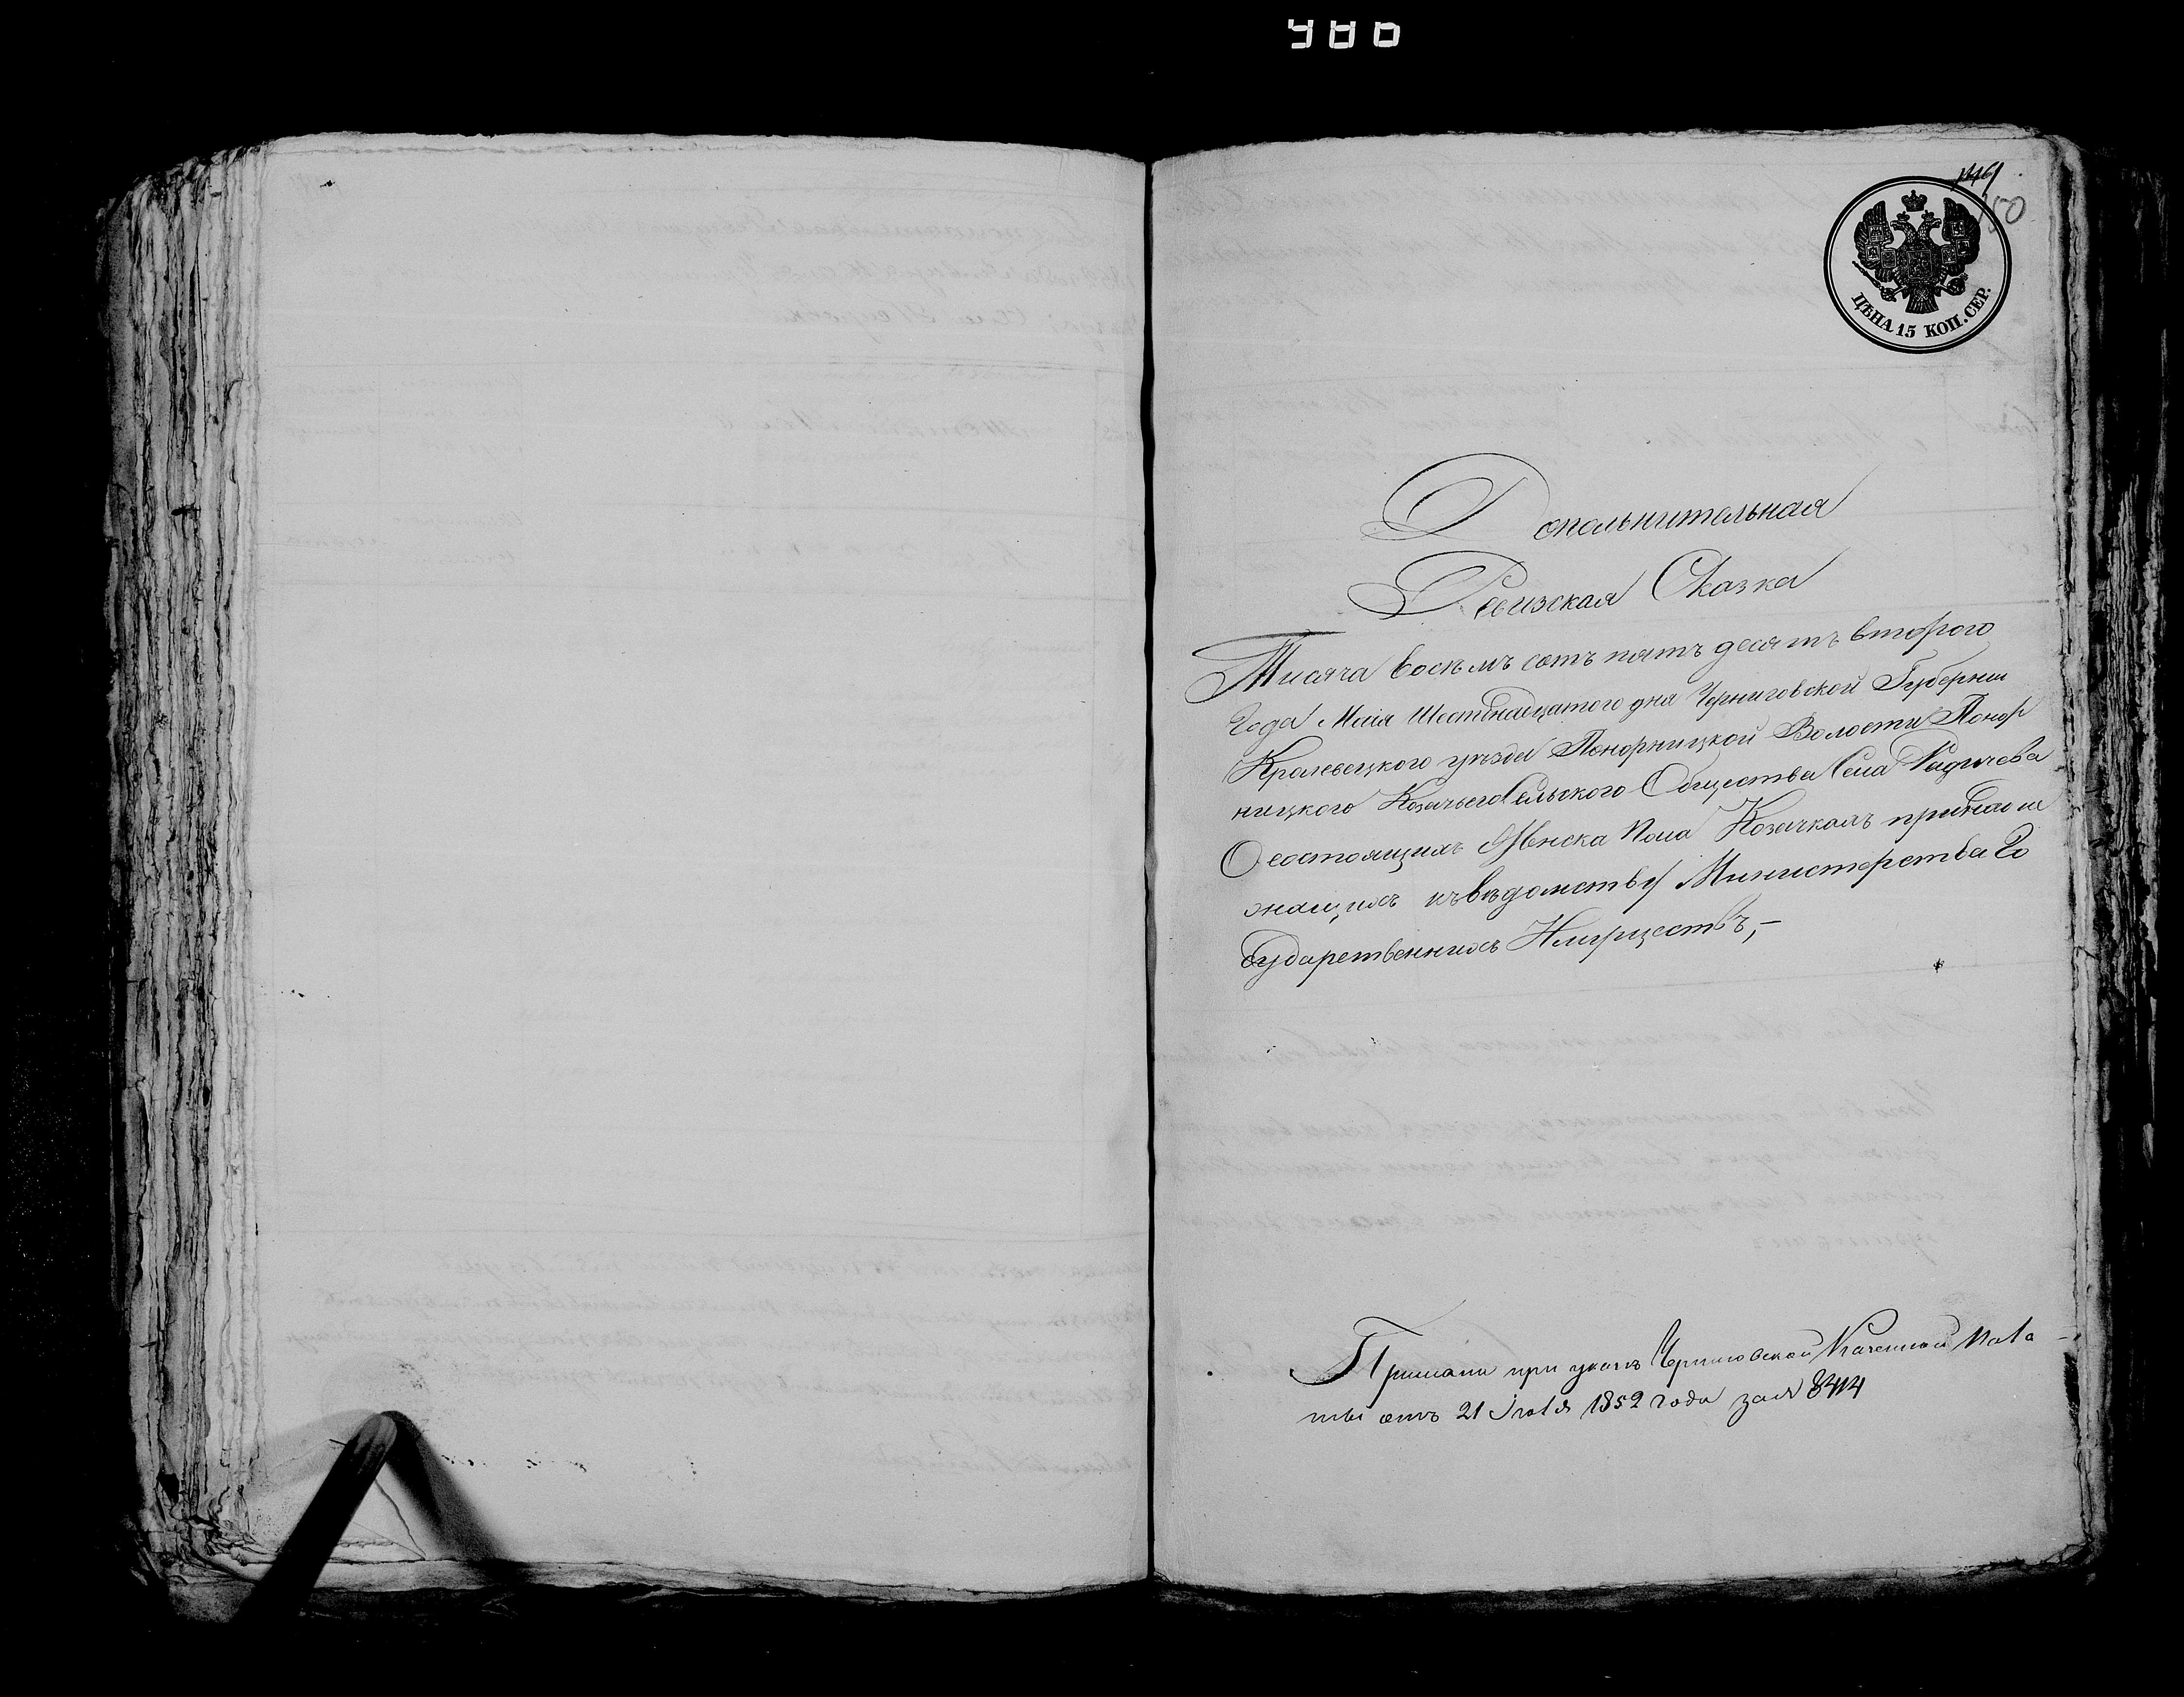 986
146
150
ЦѢНА 15 КОП. СЕР.
Дополнительная
Ревизская Сказка
Тисяча восемъ сотъ пятъ десятъ второго
Года Маія Шестнадцатого дня Черниговской Губернии
Кролевецкого уѣзда Понорницкой Волости Понор
ницкого Козачьего Сельского Общества Села Радичева
О состоящихъ Женска Пола Козачкахъ принадле
жащихъ къ вѣдомству Министерства Го
сударственнихъ Имуществъ,-
Прислана при указѣ Черниговской Казенной Пала
ты отъ 21 Іюля 1852 года за № 8414